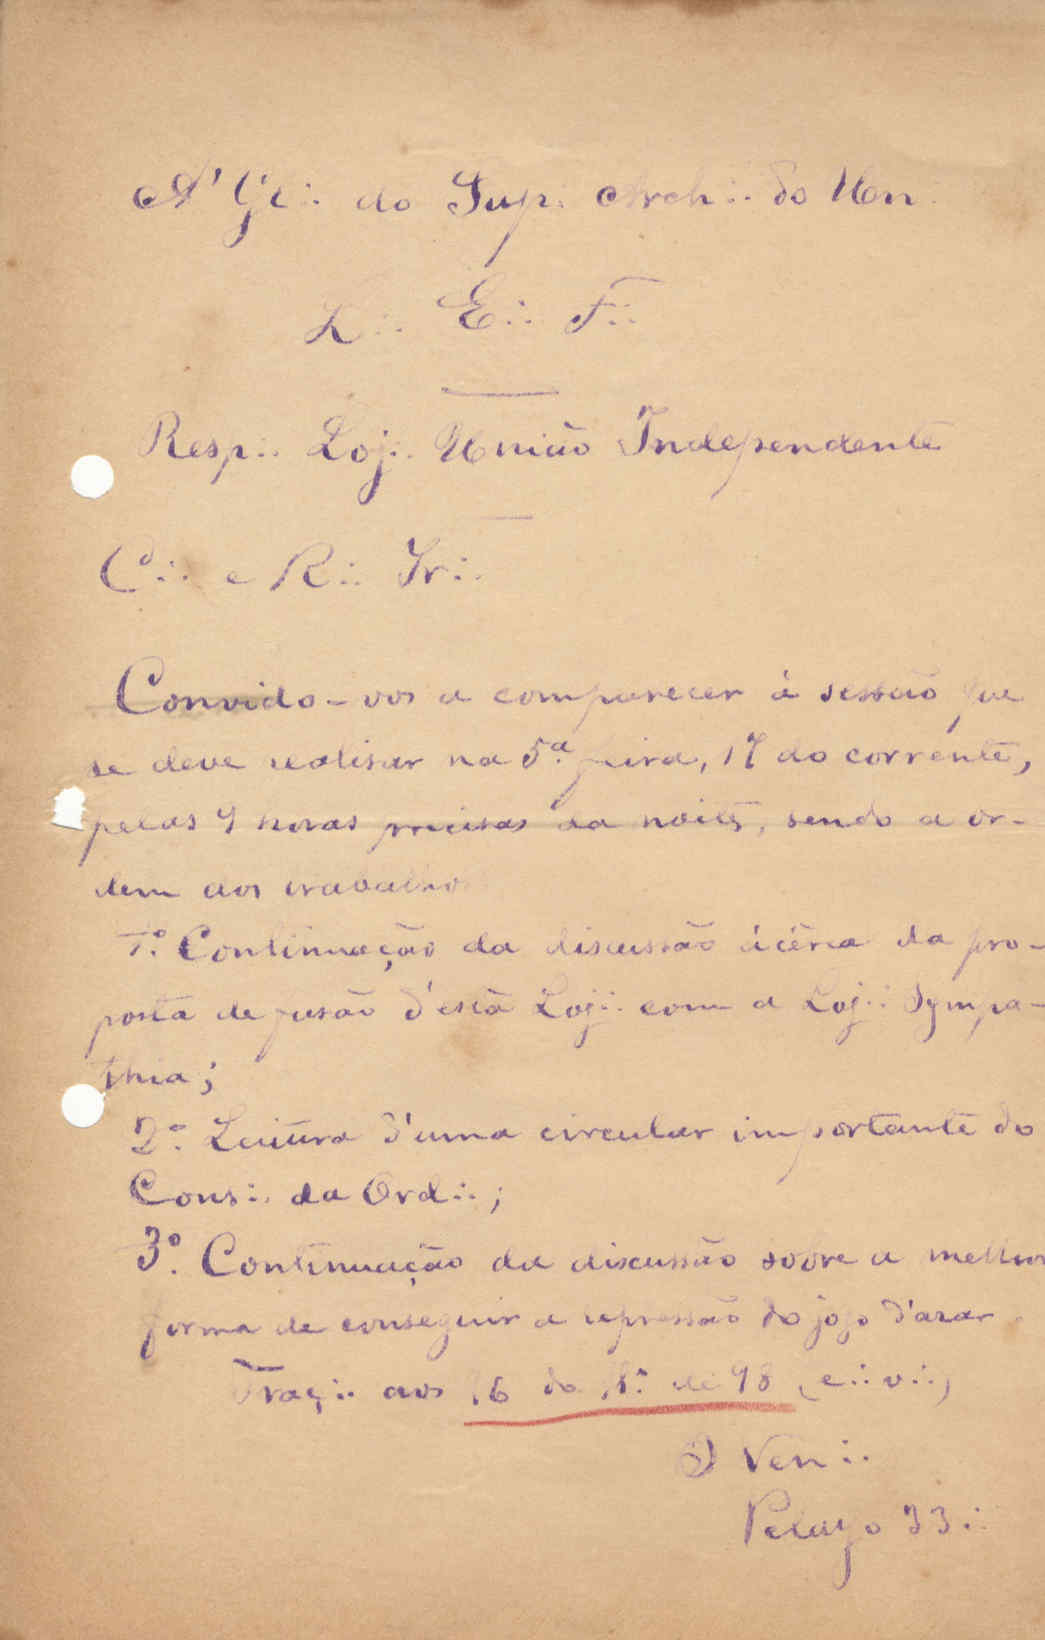 A' Gl∴ do Sup∴ Arch∴ do Un∴
L∴ E∴ F∴
Resp∴ Loj∴ União Independente
C∴ e R∴ Ir∴
Convido-vos a comparecer á sessão que
se deve realisar na 5ª feira, 17 do corrente,
pelas 9 horas precisas da noite, sendo a or-
dem dos trabalhos
1º. Continuação da discussão ácêrca da pro-
posta de fusão d'esta Loj∴ com a Loj∴ Sympa-
thia;
2º. Leitura d'uma circular importante do
Cons∴ da Ord∴;
3º. Continuação da discussão sobre a melhor
forma de conseguir a repressão do jogo d'azar.
Traç∴ aos 16 do de 98 (e∴ v∴)
O Ven∴
Pelayo 33∴